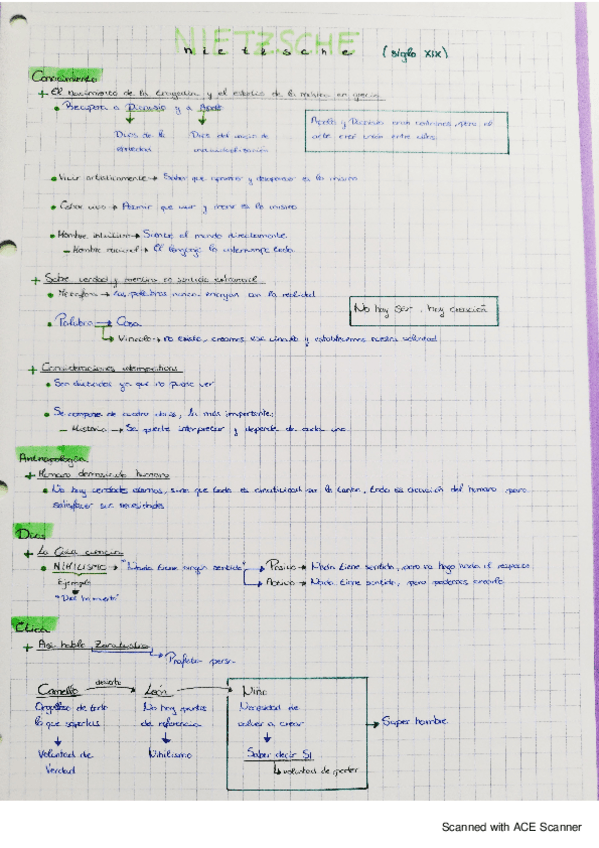 NIETZSCHE
nietzsche (siglo XIX)
Conocimiento
+ El nacimiento de la tragedia y el espíritu de la música en
• Recupera a Dionisio y a Apolo
Dios de la
Dios del
Apolo y Dionisio eran contrarios, pero el
arte creó unión entre ellos.
• Vivir artísticamente → Saber que y es lo mismo
• Estar vivo → Asumir que vivir y morir es lo mismo
• Hombre intuitivo → Siente el mundo directamente
– Hombre racional → El lenguaje lo interrumpe todo
+ Sobre verdad y mentira en sentido extramoral
• Metáfora → Las palabras nunca encajan con la realidad
No hay Ser, hay creación
• Palabra → Cosa
Vínculo → no existe, creamos ese vínculo y establecemos nuestra voluntad
+ Consideraciones intempestivas
• Son ya que no puede ver
• Se compone de cuatro, la más importante:
– Historia → Se puede interpretar y depende de cada uno
Antropología
+ Humano demasiado humano
• No hay verdades eternas, sino que todo es, todo es creación del humano para
satisfacer sus necesidades
Dios
+ La Gaia ciencia
• NIHILISMO → "Nada tiene ningún sentido" → Pasivo → Nada tiene sentido, pero no hago nada al respecto
→ Activo → Nada tiene sentido, pero podemos crearlo
Ejemplo
"Dios ha muerto"
Ética
+ Así habló Zaratustra
Profeta persa
Camello → León → Niño
Orgulloso de todo
lo que soportas
No hay puntos
de referencia
Necesidad de
volver a crear
→ Super hombre
Voluntad de
Verdad
Nihilismo
Saber decir SI
voluntad de poder
Scanned with ACE Scanner